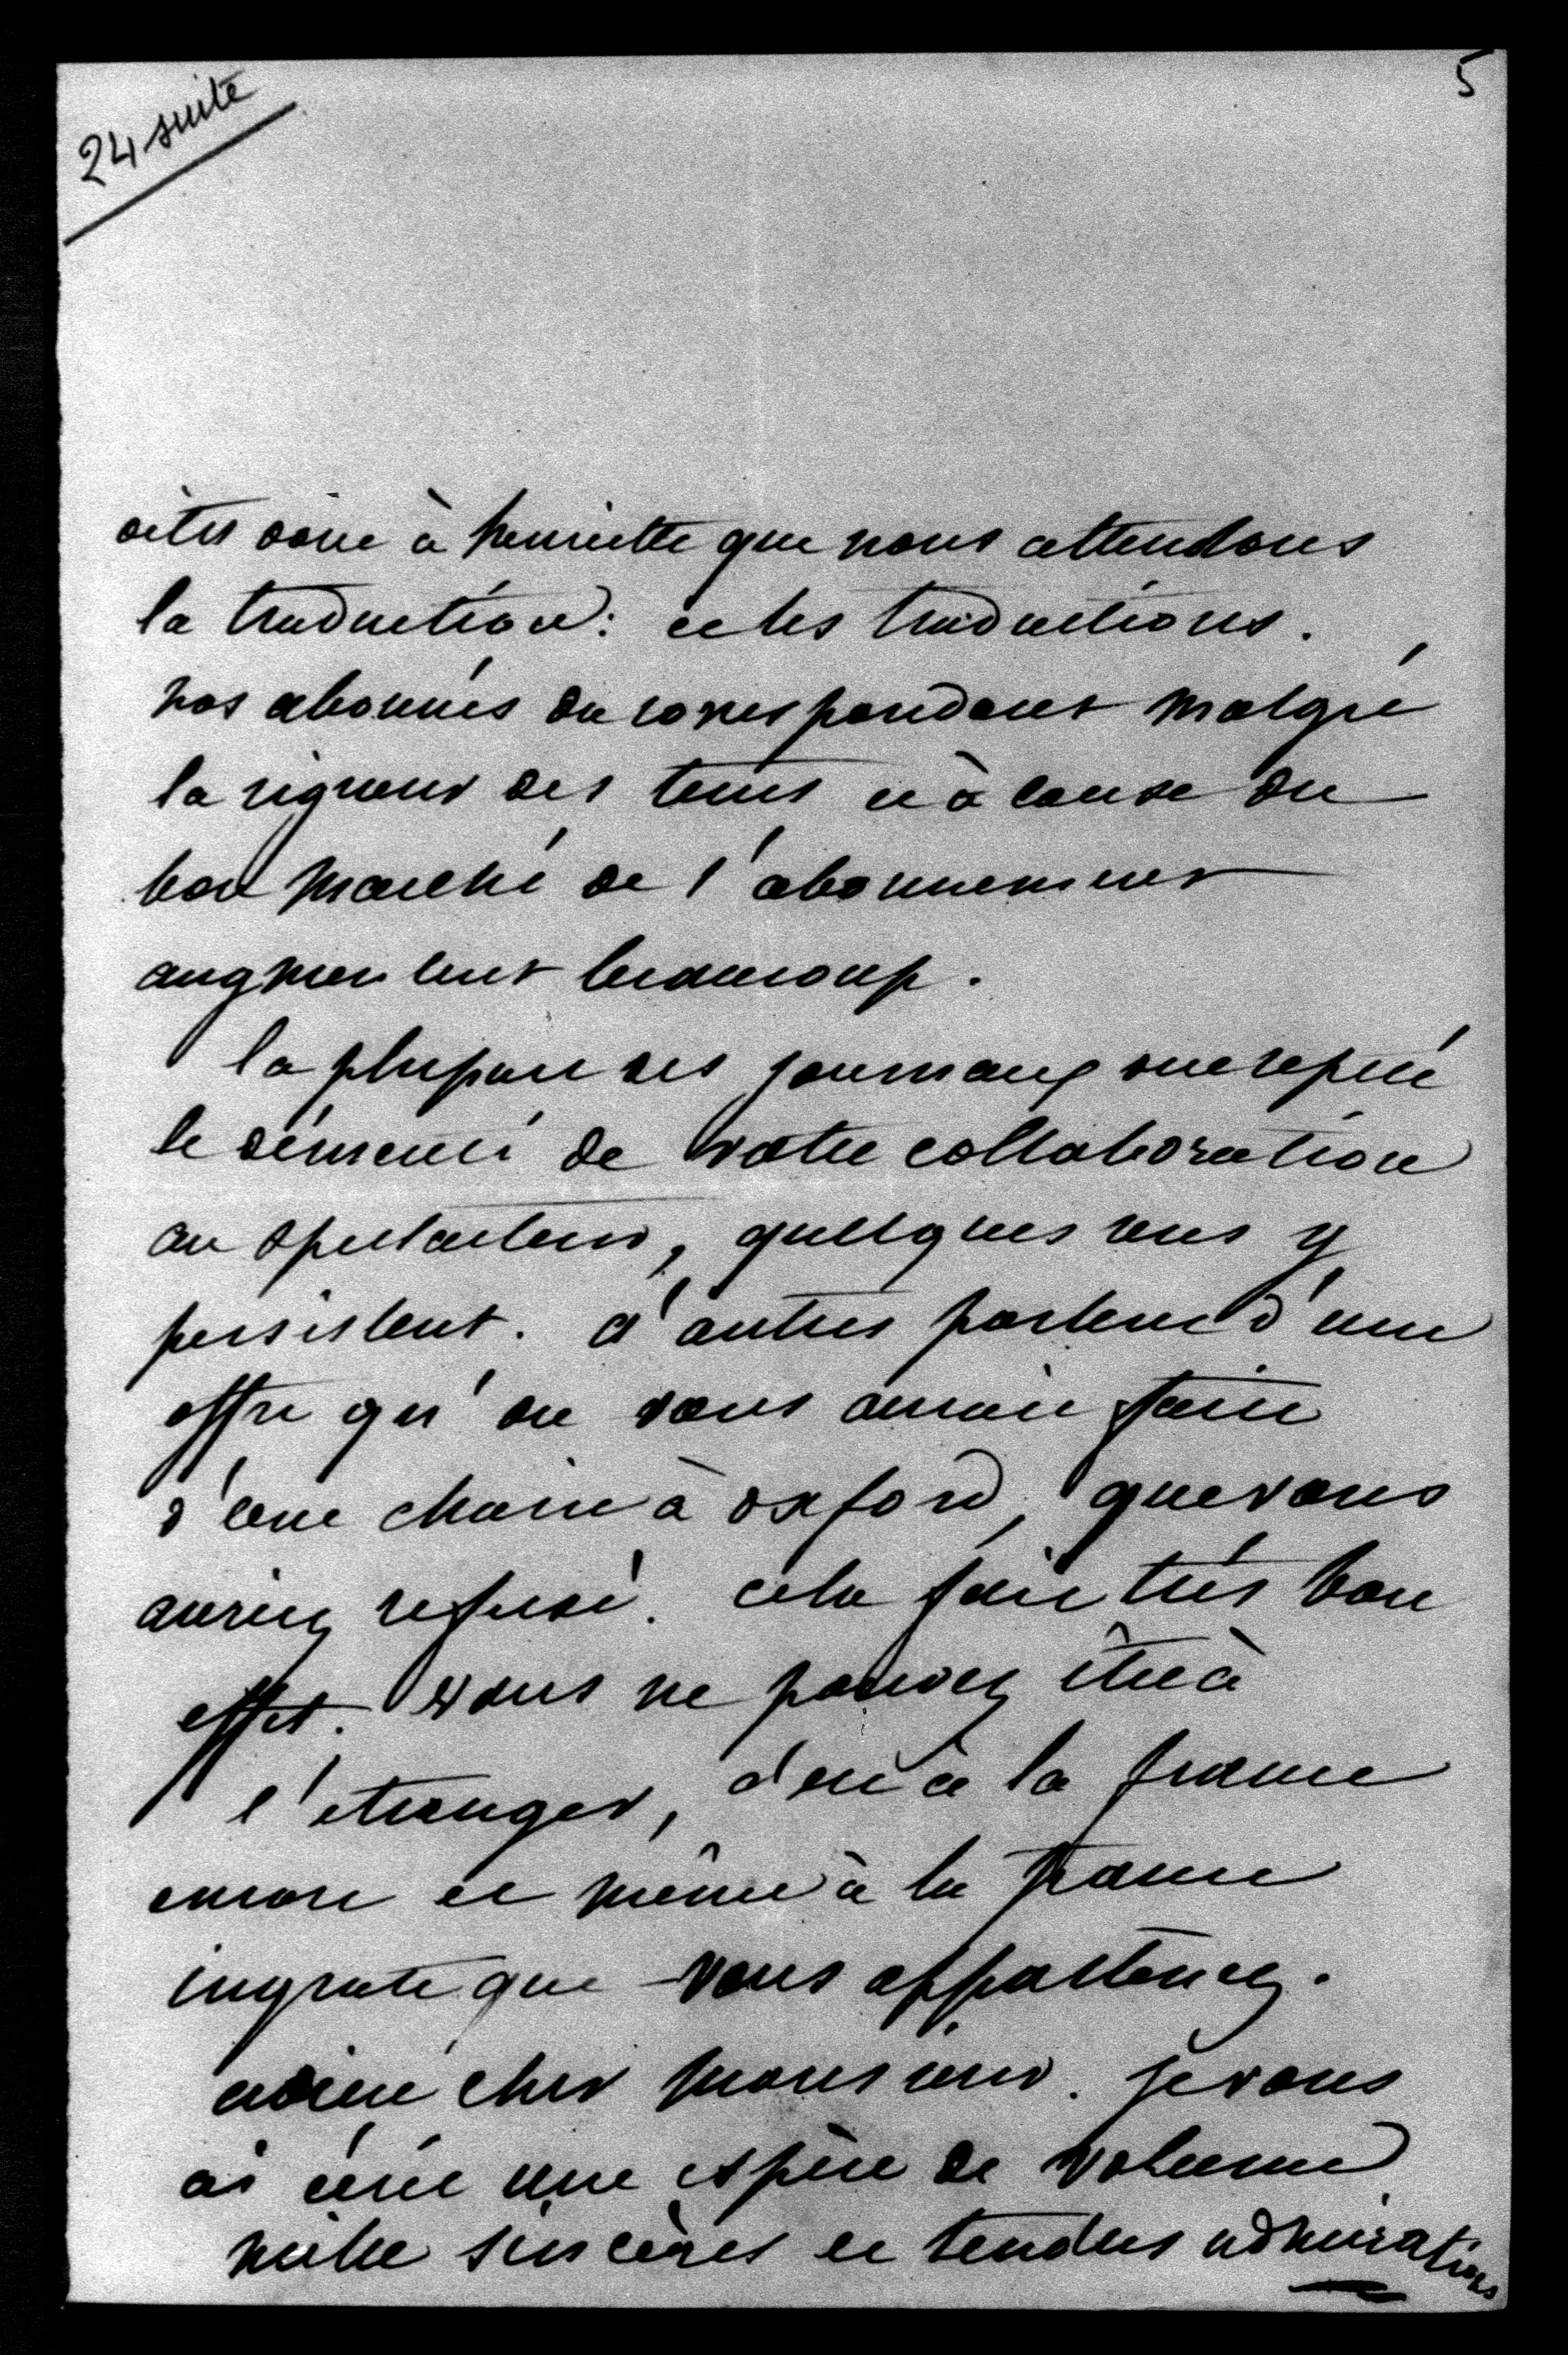 24 suite
5
dites donc à henriette que nous attendons
la traduction: et les traductions.
nos abonnés du correspondant malgré
la rigueur des tems et à cause du
bon marché de l'abonnement
augmentent beaucoup.
la plupart des journaux ont répété
le démenti de votre collaboration
au spectateur, quelques uns y
persistent. d'autres parlent d'une
offre qu'on vous aurait faite
d'une chaire à oxford, que vous
auriez refusé. cela fait très bon
effet. vous ne pouvez être à
l'étranger, c'est à la france
encore et même à la france
ingrate que vous appartenez.
adieu cher monsieur. je vous
ai écrit une espèce de volume
mille sincères et tendres admirations